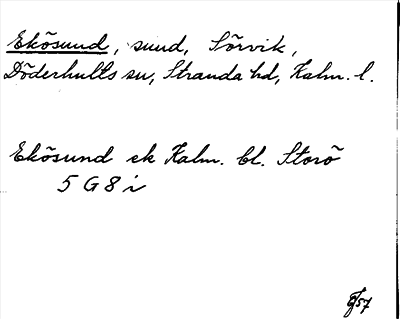 Ekösund, sund, Sörvik,
Döderhults sn, Stranda hd, Kalm. l.
Ekösund ek Kalm. bl. Storö
5 G 8 i